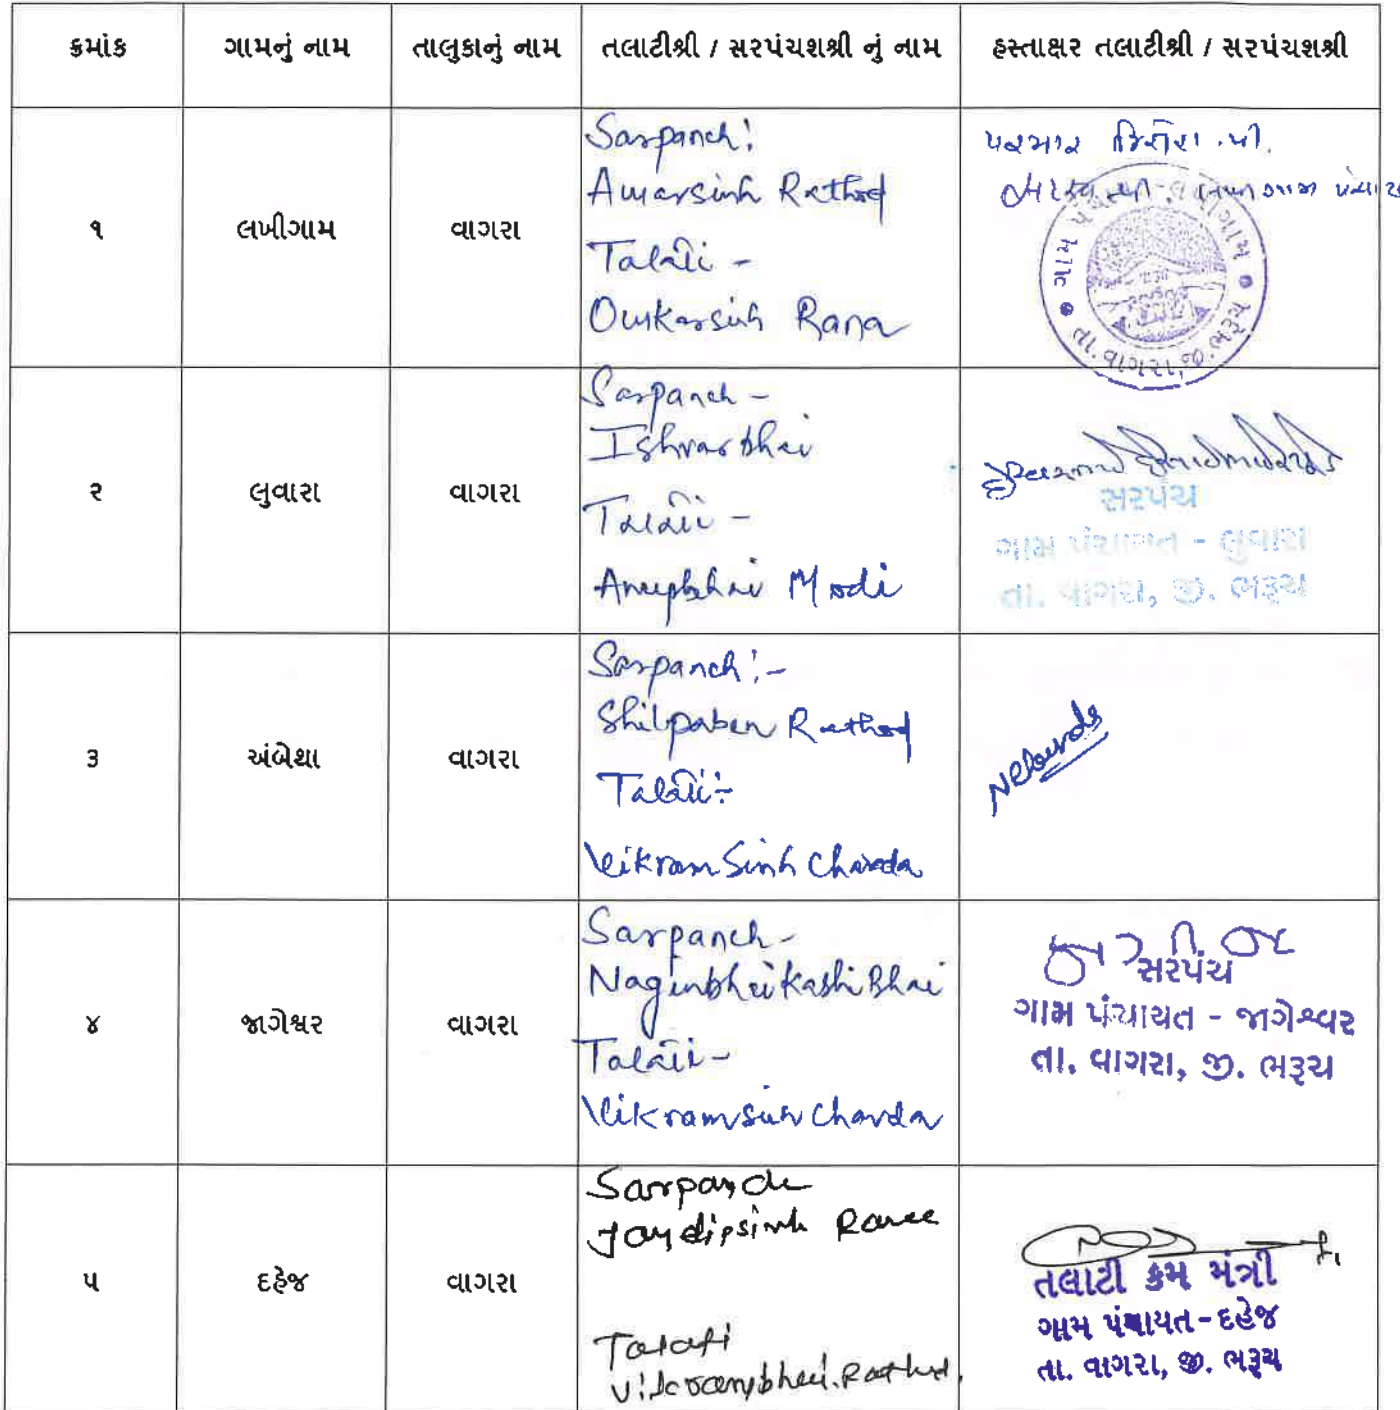 ક્રમાંક ગામનું નામ તાલુકાનું નામ તલાટીશ્રી / સરપંચશશ્રી નું નામ હસ્તાક્ષર તલાટીશ્રી / સરપંચશશ્રી
૧ લખીગામ વાગરા
Sarpanch:
Amarsinh Rathod
Talati -
Omkarsinh Rana
પરમાર
તા. વાગરા, જી. ભરૂચ
૨ લુવારા વાગરા
Sarpanch -
Ishvarbhai
Talati -
Anupbhai Modi
સરપંચ
ગામ પંચાયત - લુવારા
તા. વાગરા, જી. ભરૂચ
૩ અંબેથા વાગરા
Sarpanch :-
Shilpaben Rathod
Talati :-
Vikram Sinh Chavda
૪ જાગેશ્વર વાગરા
Sarpanch -
Naginbhai Kashibhai
Talati -
Vikramsinh Chavda
સરપંચ
ગામ પંચાયત - જાગેશ્વર
તા. વાગરા, જી. ભરૂચ
૫ દહેજ વાગરા
Sarpanch
Jaydipsinh
Talati
Vikrambhai. Rathod.
તલાટી ક્રમ મંત્રી
ગામ પંચાયત - દહેજ
તા. વાગરા, જી. ભરૂચ